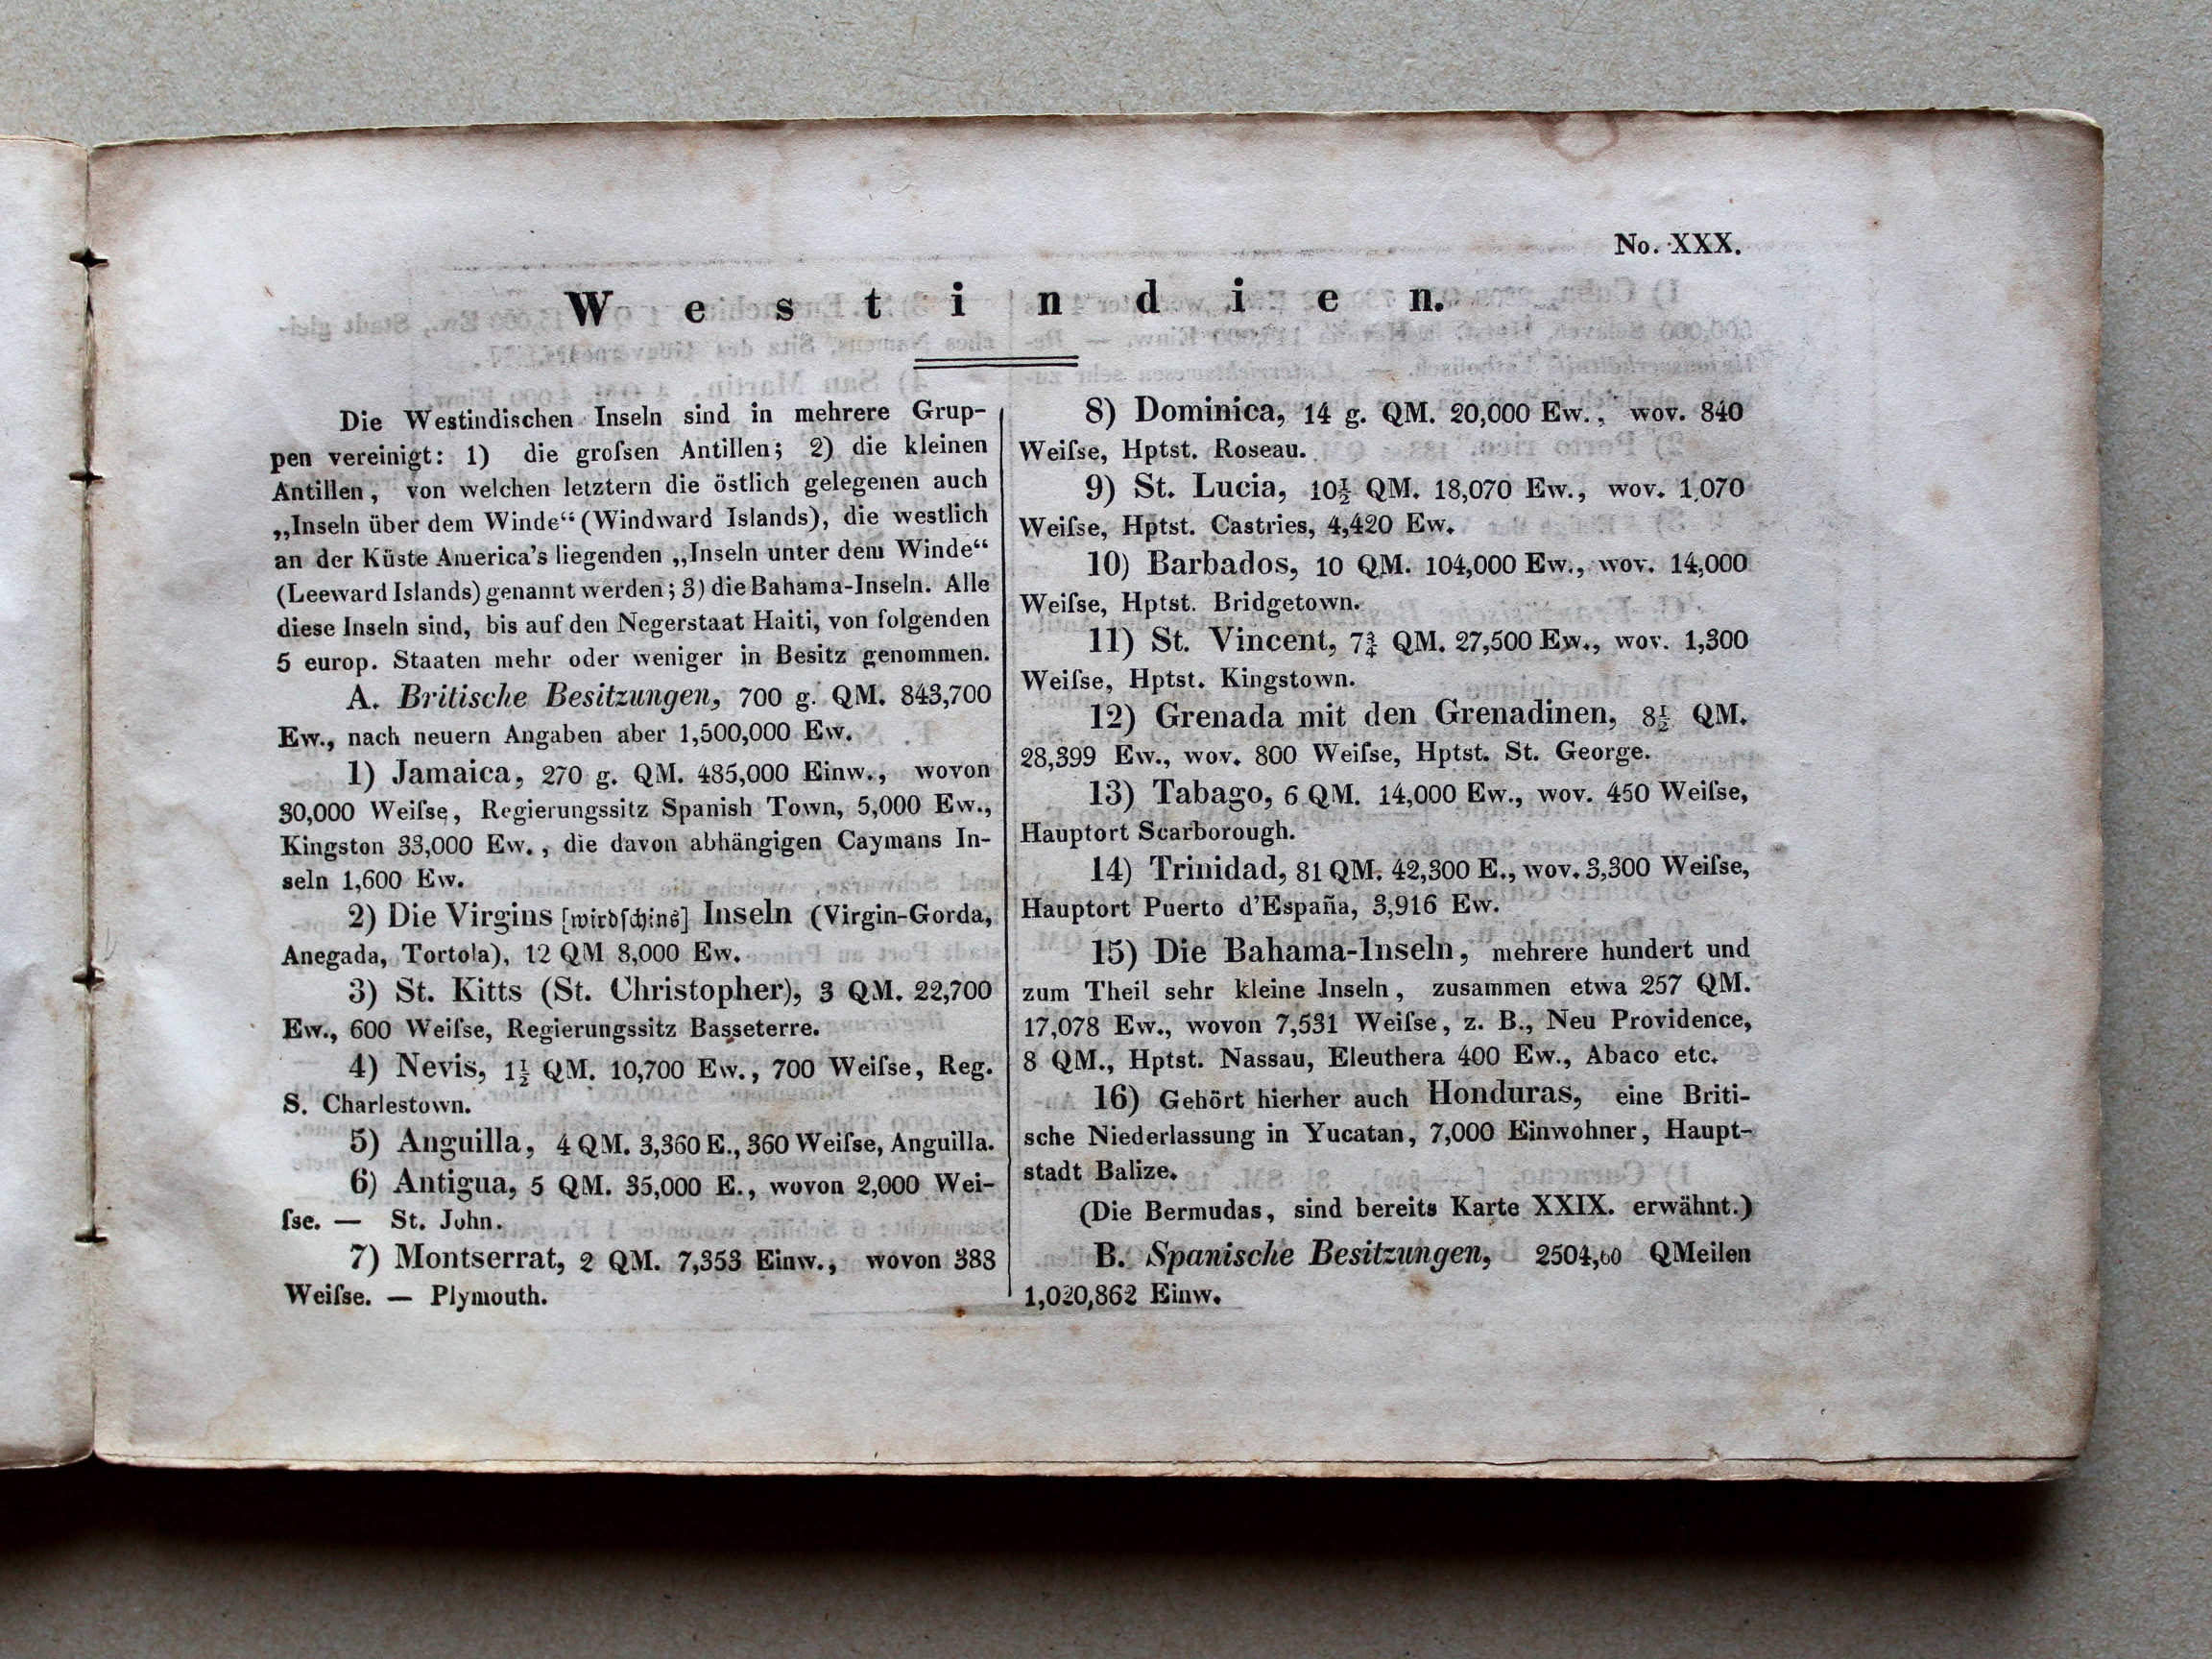 No. XXX.
Westindien.
Die Westindischen Inseln sind in mehrere Grup-
pen vereinigt: 1) die groſsen Antillen; 2) die kleinen
Antillen, von welchen letztern die östlich gelegenen auch
„Inseln über dem Winde“ (Windward Islands), die westlich
an der Küste America's liegenden „Inseln unter dem Winde“
(Leeward Islands) genannt werden; 3) die Bahama-Inseln. Alle
diese Inseln sind, bis auf den Negerstaat Haiti, von folgenden
5 europ. Staaten mehr oder weniger in Besitz genommen.
A. Britische Besitzungen, 700 g. QM. 843,700
Ew., nach neuern Angaben aber 1,500,000 Ew.
1) Jamaica, 270 g. QM. 485,000 Einw., wovon
30,000 Weiſse, Regierungssitz Spanish Town, 5,000 Ew.,
Kingston 33,000 Ew., die davon abhängigen Caymans In-
seln 1,600 Ew.
2) Die Virgins [wirdſchins] Inseln (Virgin-Gorda,
Anegada, Tortola), 12 QM 8,000 Ew.
3) St. Kitts (St. Christopher), 3 QM. 22,700
Ew., 600 Weiſse, Regierungssitz Basseterre.
4) Nevis, 1½ QM. 10,700 Ew., 700 Weiſse, Reg.
S. Charlestown.
5) Anguilla, 4 QM. 3,360 E., 360 Weiſse, Anguilla.
6) Antigua, 5 QM. 35,000 E., wovon 2,000 Wei-
ſse. — St. John.
7) Montserrat, 2 QM. 7,353 Einw., wovon 383
Weiſse. — Plymouth.
8) Dominica, 14 g. QM. 20,000 Ew., wov. 840
Weiſse, Hptst. Roseau.
9) St. Lucia, 10½ QM. 18,070 Ew., wov. 1,070
Weiſse, Hptst. Castries, 4,420 Ew.
10) Barbados, 10 QM. 104,000 Ew., wov. 14,000
Weiſse, Hptst. Bridgetown.
11) St. Vincent, 7¾ QM. 27,500 Ew., wov. 1,300
Weiſse, Hptst. Kingstown.
12) Grenada mit den Grenadinen, 8½ QM.
28,399 Ew., wov. 800 Weiſse, Hptst. St. George.
13) Tabago, 6 QM. 14,000 Ew., wov. 450 Weiſse,
Hauptort Scarborough.
14) Trinidad, 81 QM. 42,300 E., wov. 3,300 Weiſse,
Hauptort Puerto d'España, 3,916 Ew.
15) Die Bahama-Inseln, mehrere hundert und
zum Theil sehr kleine Inseln, zusammen etwa 257 QM.
17,078 Ew., wovon 7,531 Weiſse, z. B., Neu Providence,
8 QM., Hptst. Nassau, Eleuthera 400 Ew., Abaco etc.
16) Gehört hierher auch Honduras, eine Briti-
sche Niederlassung in Yucatan, 7,000 Einwohner, Haupt-
stadt Balize.
(Die Bermudas, sind bereits Karte XXIX. erwähnt.)
B. Spanische Besitzungen, 2504,60 QMeilen
1,020,862 Einw.